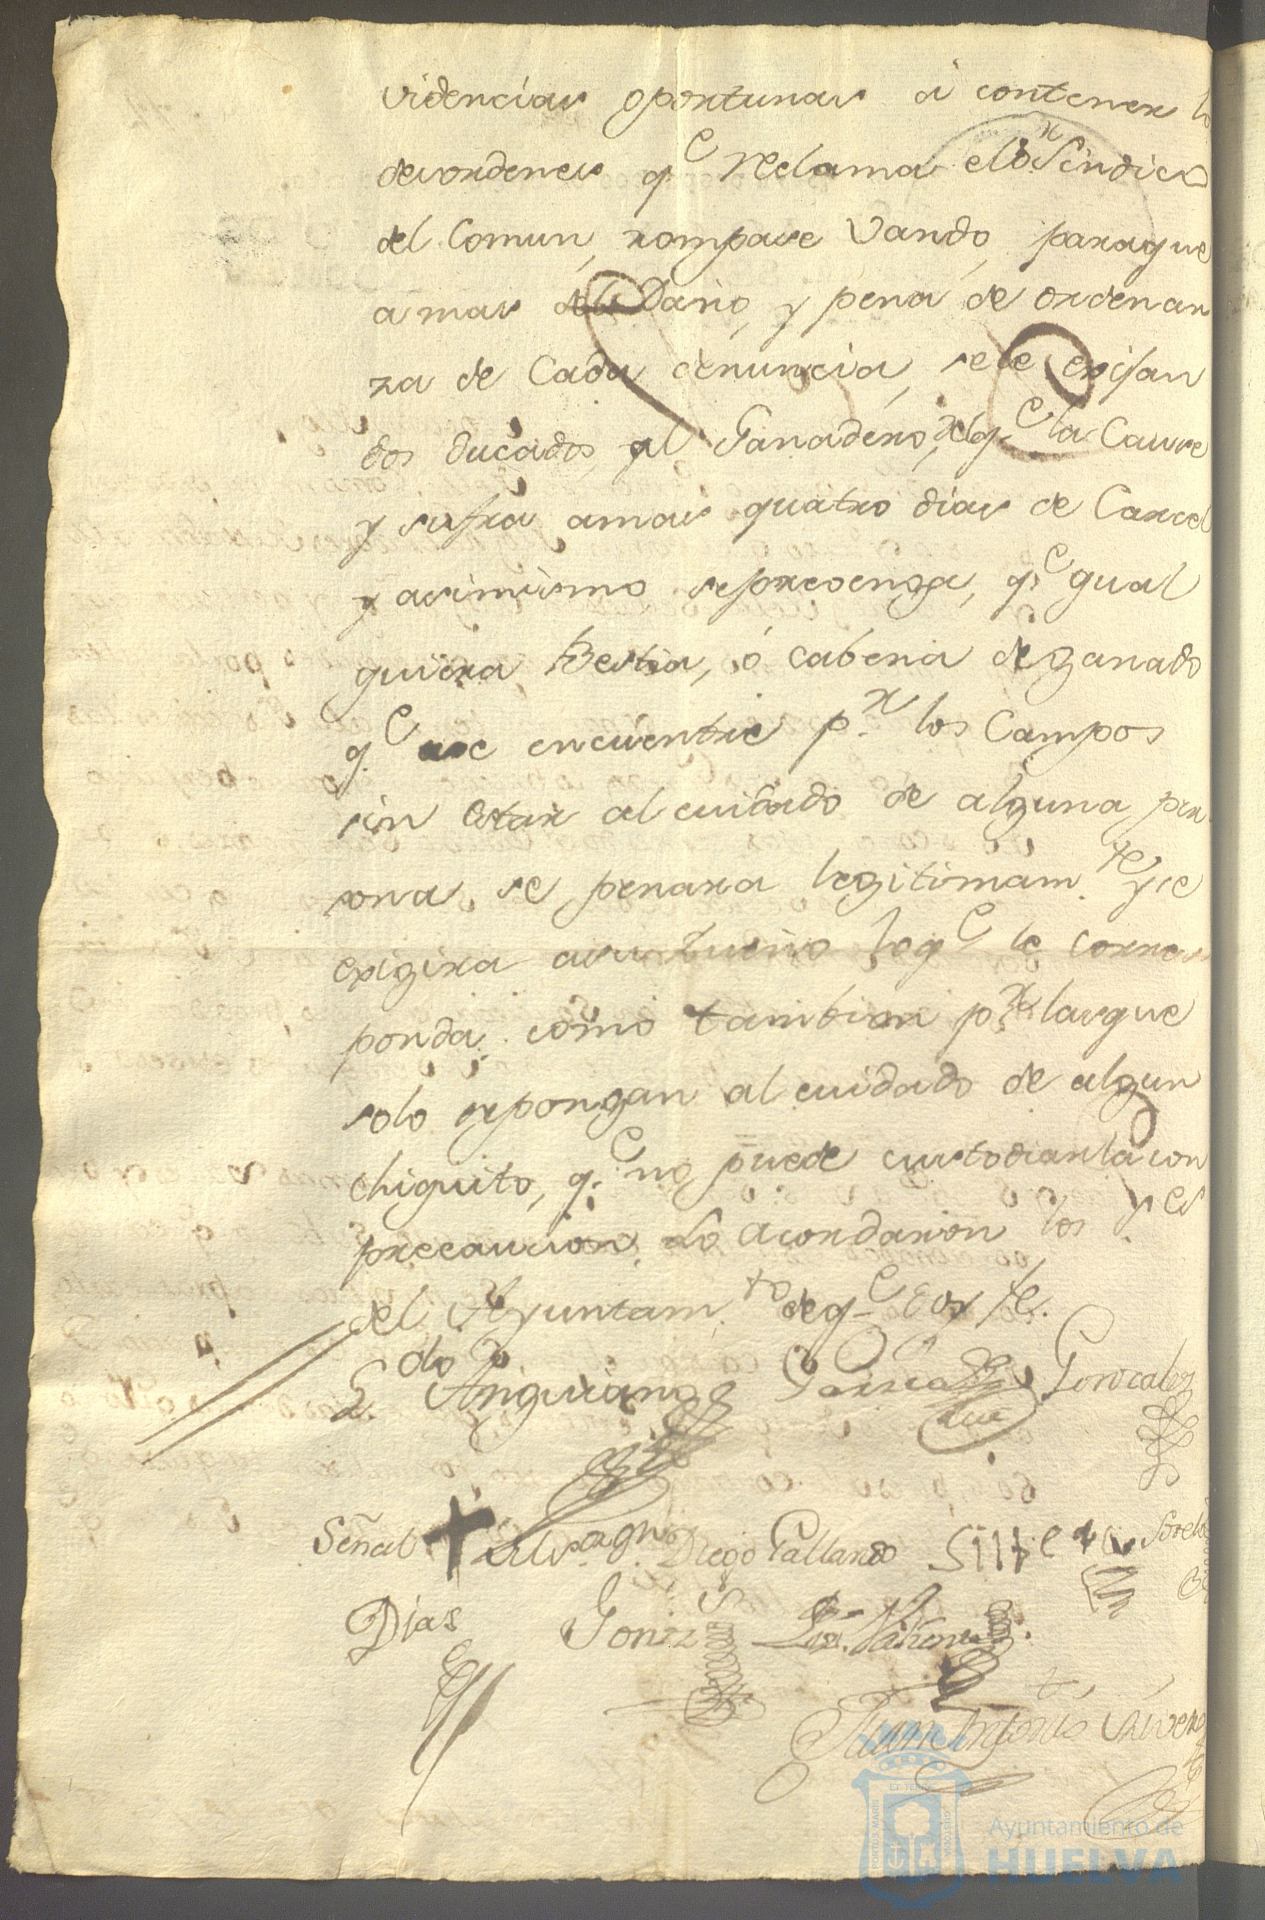 videncias oportunas á contener lo
desordenes qe reclama el Sr Sindico
del Comun, rompase Vando, paraque
amas del Daño, y pena de ordenan
za de Cada denuncia, sele exijan
dos ducados al Ganadero, qe la Cause
y sufra amas quatro dias de Carcel
y asimismo seprevenga, qe qual
quiera Bestia, ó cabeza de ganado
qe se encuentre pr los Campos
sin estar al cuidado de alguna per
sona, se penara legitimamte y se
exigira asu Dueño loqe le corres
ponda como tambien pr lasque
solo sepongan al cuidado de algun
chiquito, qe no puede custodiarla con
precaucion. Lo acordaron los Sres
del Ayuntamto deqe doy fe.
Ldo Anguiano Garcia Gonzales
Señal + Diego Gallardo
Dias Gomz
Juan Antonio
Ayuntamiento de
HUELVA